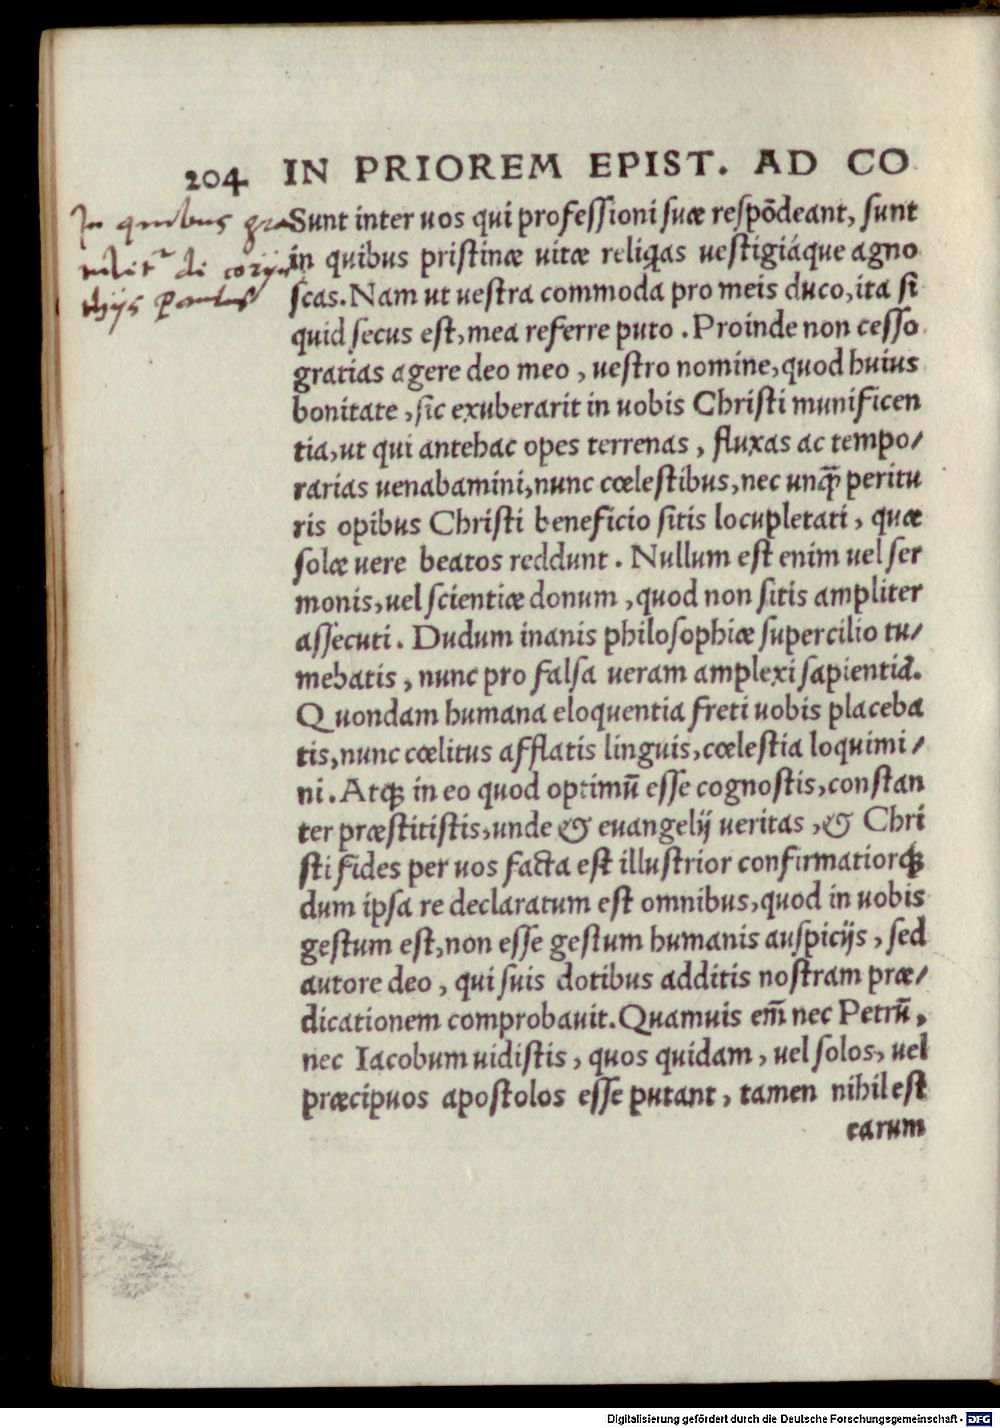 204 IN PRIOREM EPIST. AD CO
In quibus gra
tulit~ di corijn
thijs paulus
Sunt inter uos qui professioni suæ respōdeant, sunt
in quibus pristinæ uitæ reliꝗas uestigiáque agno
scas. Nam ut uestra commoda pro meis duco, ita si
quid secus est, mea referre puto. Proinde non cesso
gratias agere deo meo, uestro nomine, quod huius
bonitate, sic exuberarit in uobis Christi munificen
tia, ut qui antehac opes terrenas, fluxas ac tempo/
rarias uenabamini, nunc cœlestibus, nec unꝗ̃ peritu
ris opibus Christi beneficio sitis locupletati, quæ
solæ uere beatos reddunt. Nullum est enim uel ser
monis, uel scientiæ donum, quod non sitis ampliter
assecuti. Dudum inanis philosophiæ supercilio tu/
mebatis, nunc pro falsa ueram amplexi sapientiã.
Quondam humana eloquentia freti uobis placeba
tis, nunc cœlitus afflatis linguis, cœlestia loquimi/
ni. Atqꝫ in eo quod optimũ esse cognostis, constan
ter præstitistis, unde & euangelij ueritas, & Chri
sti fides per uos facta est illustrior confirmatiorqꝫ
dum ipsa re declaratum est omnibus, quod in uobis
gestum est, non esse gestum humanis auspicijs, sed
autore deo, qui suis dotibus additis nostram præ/
dicationem comprobauit. Quamuis em̃ nec Petrũ,
nec Iacobum uidistis, quos quidam, uel solos, uel
præcipuos apostolos esse putant, tamen nihil est
earum
Digitalisierung gefördert durch die Deutsche Forschungsgemeinschaft - DFG